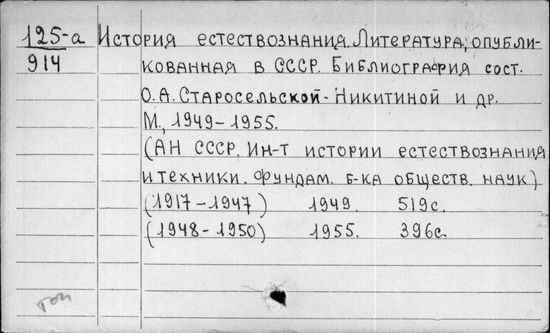 125-а
914
История естествознания. Литература, опубли-
кованная в СССР. Библиография сост.
О.А. Старосельской-Никитиной и др.
М., 1949-1955.
(АН СССР. Ин-т истории естествознания
и техники. Фундам. б-ка обществ. наук)
(1917-1947) 1949. 519с.
(1948-1950) 1955. 396с.